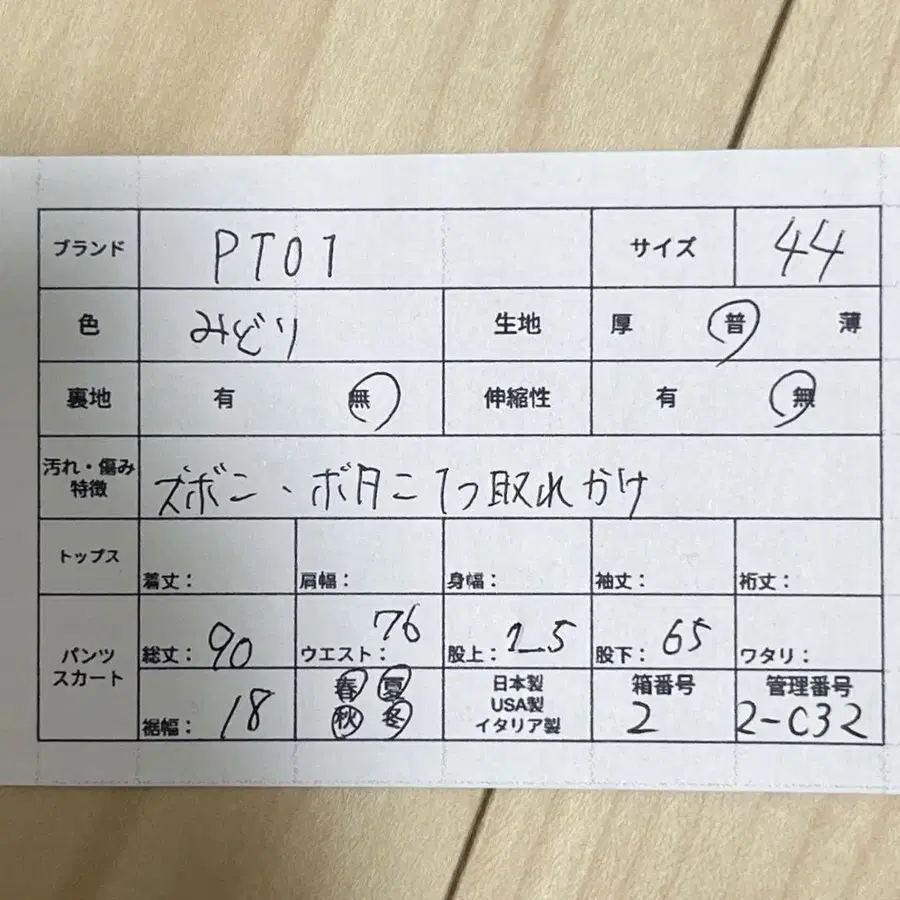 ブランド PT01 サイズ 44
色 みどり 生地 厚 普 薄
裏地 有 無 伸縮性 有 無
汚れ・傷み
特徴 ズボン、ボタン1つ取れかけ
トップス 着丈: 肩幅: 身幅: 袖丈: 裄丈:
パンツ
スカート 総丈: 90 ウエスト: 76 股上: 股下: 65 ワタリ:
裾幅: 18 春 夏 秋 冬 日本製 USA製 イタリア製 箱番号 2 管理番号 2-C32